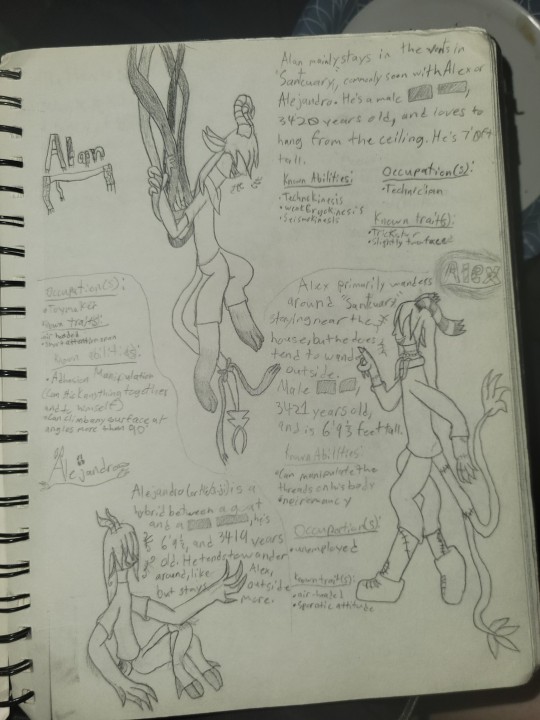 Alan mainly stays in the vents in
"Santcuary", commonly seen with Alex or
Alejandro. He's a male
3420 years old, and loves to
hang from the ceiling. He's 7'0ft
tall.
Known Abilities:
• Technokinesis
• weak Cryokinesis
• Seismokinesis
Occupation(s):
• Technician
Known trait(s):
• Trickster
• slightly two faced
Alan
Alex
Alex primarily wanders
around "Santcuary"
staying near the
house, but he does
tend to wander
outside.
Male
3421 years old,
and is 6'9½ feet tall.
Known Abilities:
• Can manipulate the
threads on his body
Occupation(s)
• unemployed
known trait(s):
• air-headed
• sporatic attitude
Occupation(s):
• Toymaker
Known traits:
air headed
• short attention span
Known abilities:
• Adhesion Manipulation
(Can stick anything together
and to himself)
• Can climb any surface at
angles more than 90°
Alejandro
Alejandro (or Al) is a
hybrid between a goat
and a he's
6'9½, and 3419 years
old. He tends to wander
around, like Alex,
but stays outside
more.